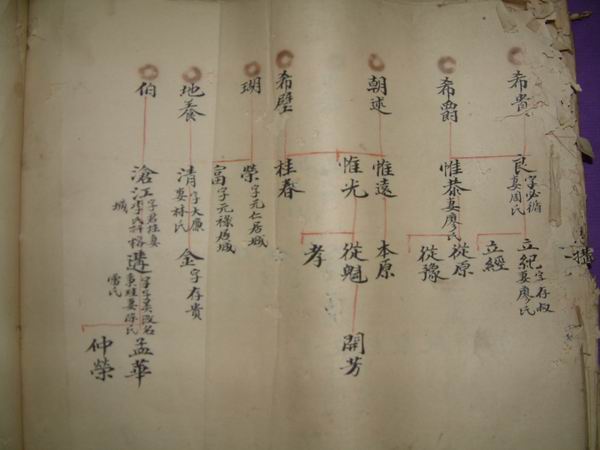 希貴
良 字必循 妻周氏
立紀 字存叔 妻廖氏
立經
希爵
惟恭 妻廖氏
從原
從豫
朝述
惟遠
本原
惟光
從魁
開芳
希壁
桂春
孝
瑚
榮 字元仁居城
富 字元祿居城
地養
清 字大廉 妻林氏
金 字存貴
伯
滄江 字君桂妻
城
遘
雷氏
孟華
仲榮